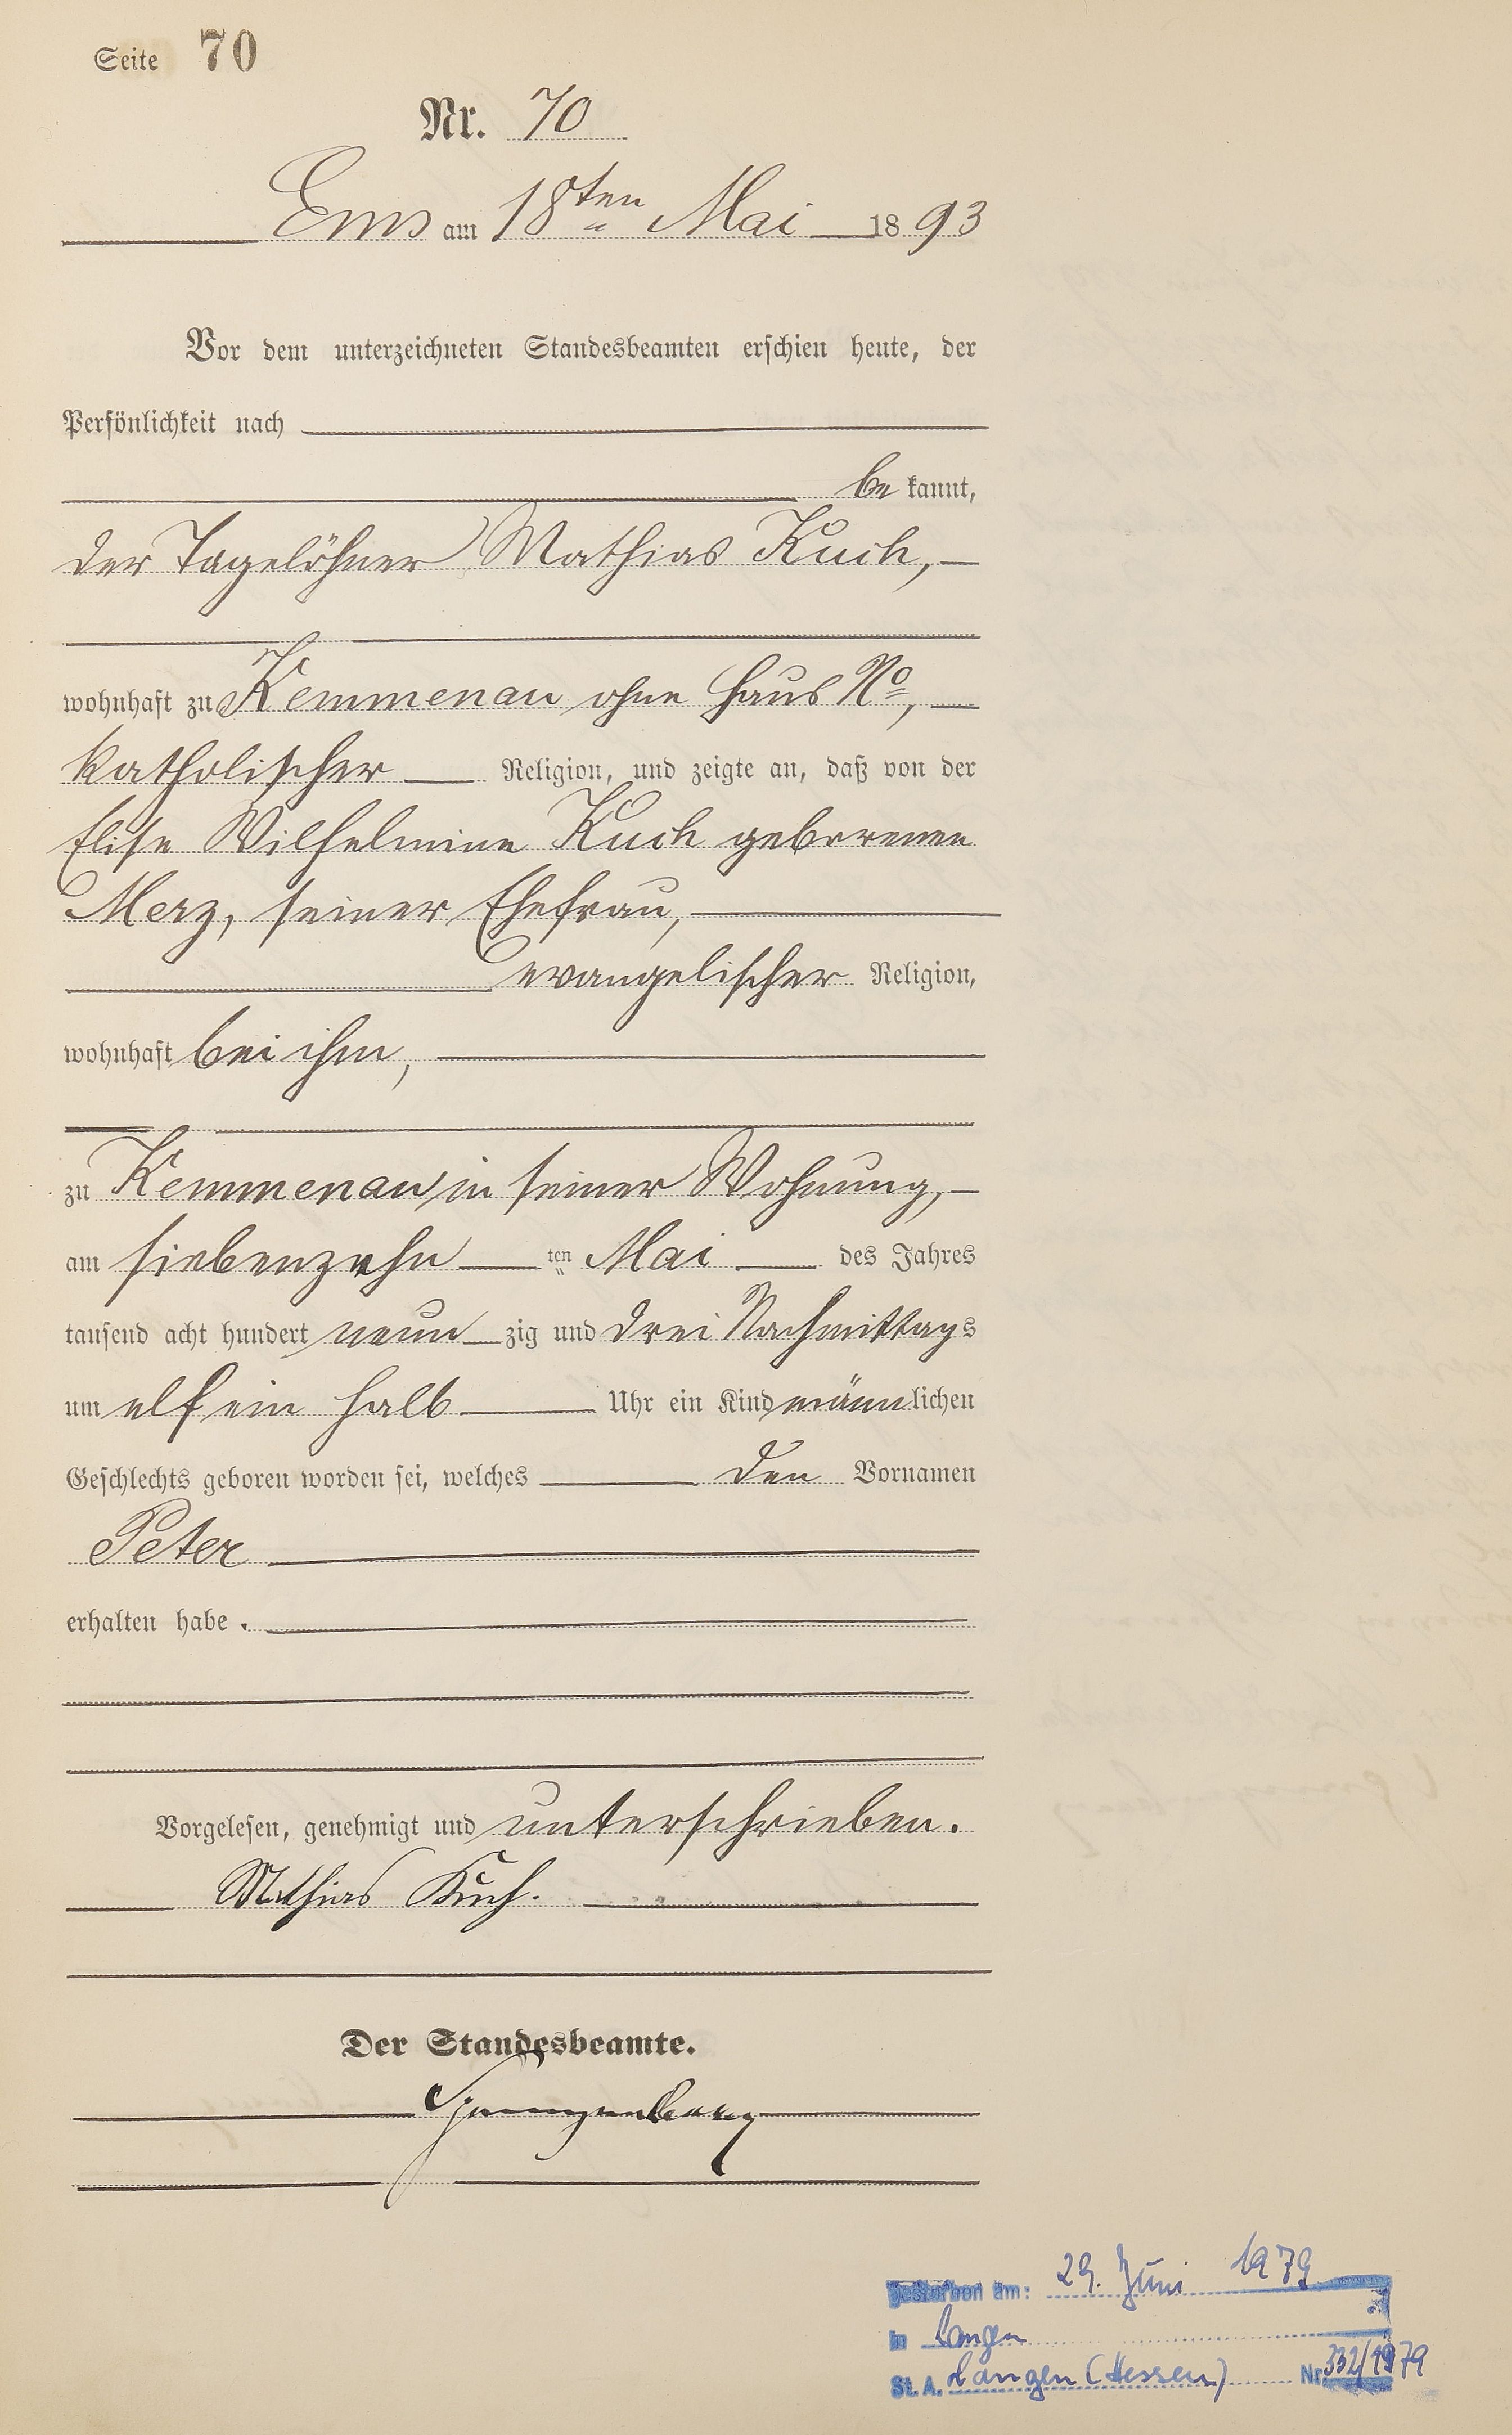 Seite 70
Nr. 70
Ems am 18ten Mai 1893
Vor dem unterzeichneten Standesbeamten erschien heute, der
Persönlichkeit nach
be kannt,
der Tagelöhner Mathias Kuch,
wohnhaft zu Kemmenau ohne Haus No,
katholischer Religion, und zeigte an, daß von der
Elise Wilhelmine Kuch geborenen
Merz, seiner Ehefrau,
evangelischer Religion,
wohnhaft bei ihm,
zu Kemmenau in seiner Wohnung,
am siebenzehn ten Mai des Jahres
tausend acht hundert neun zig und drei Nachmittags
um elf ein halb Uhr ein Kind männlichen
Geschlechts geboren worden sei, welches den Vornamen
Peter
erhalten habe.
Vorgelesen, genehmigt und unterschrieben.
Mathias Kuch.
Der Standesbeamte.
Spangenberg
gestorben am: 29. Juni 1979
in Langen
St. A. Langen (Hessen) Nr. 332/1979